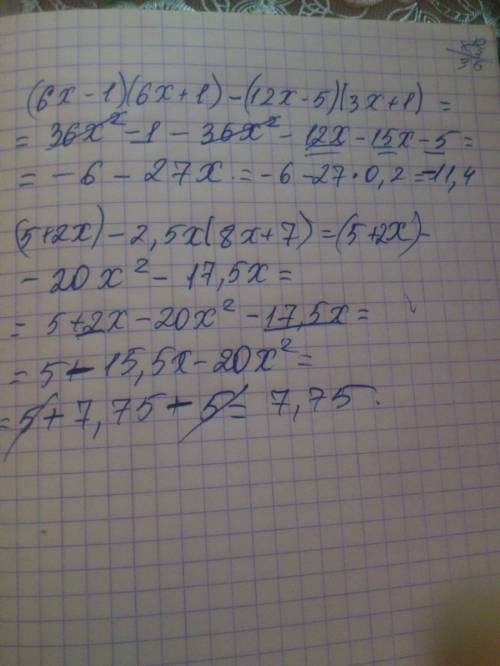 (6x-1)(6x+1)-(12x-5)(3x+1) =
= 36x²-1-36x²-12x-15x-5=
= -6-27x = -6-27·0,2=-11,4
(5+2x)-2,5x(8x+7)=(5+2x)-
-20x²-17,5x=
= 5+2x-20x²-17,5x=
=5-15,5x-20x²=
=5+7,75-5= 7,75.